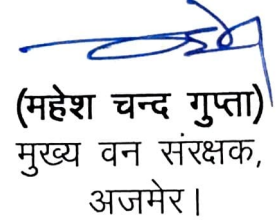 (महेश चन्द गुप्ता)
मुख्य वन संरक्षक,
अजमेर।